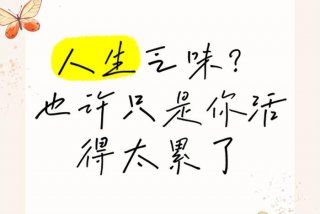 人生乏味？
也许只是你活
得太累了